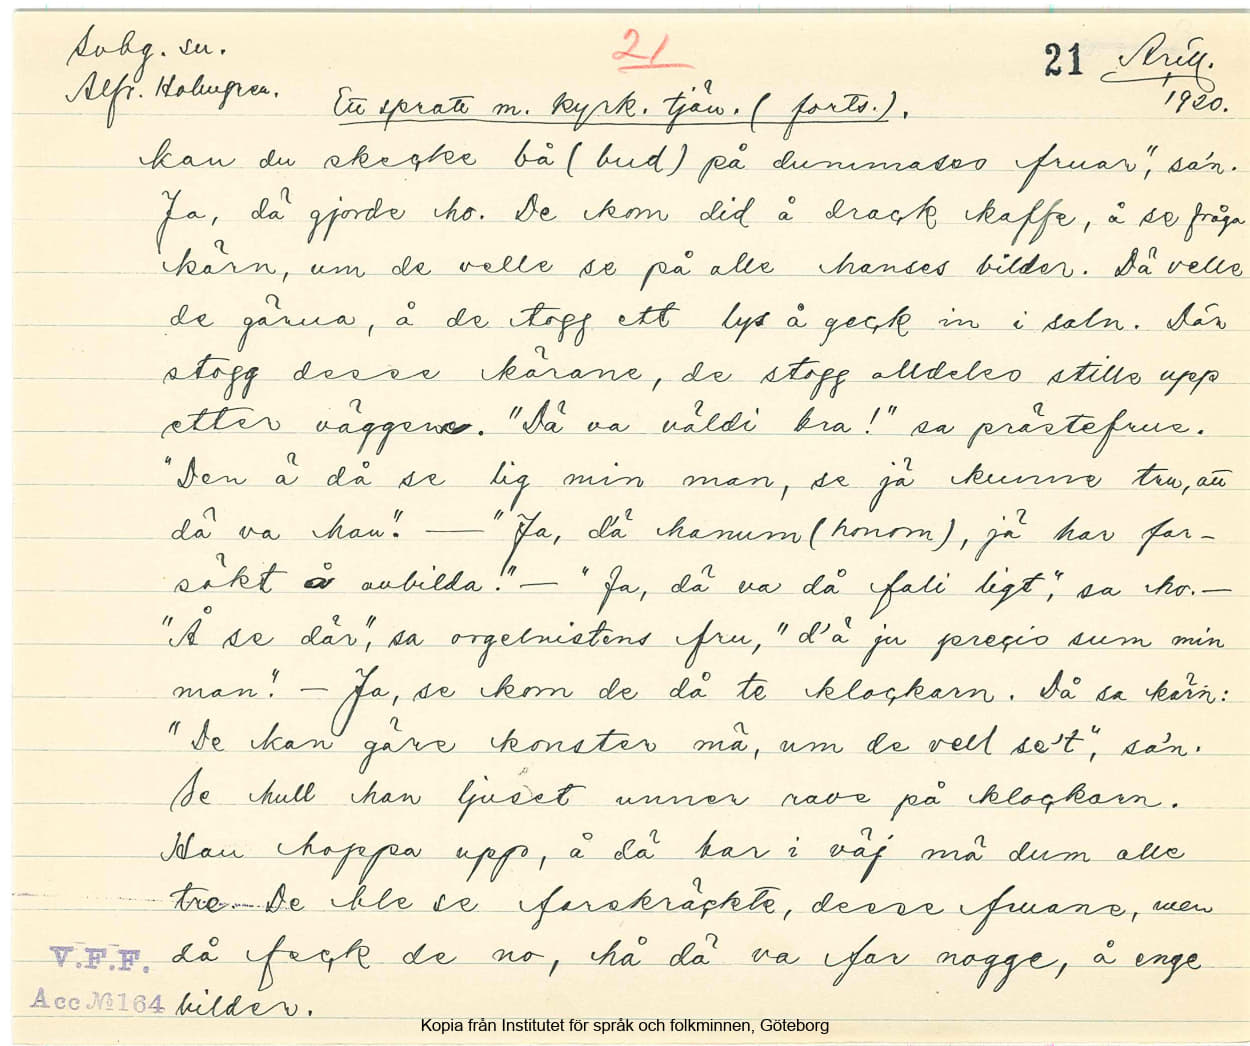 Svbg. sn.
21
21
Arill.
Alfr. Holmgren.
1920.
Ett spratt m. kyrk. tjän. (forts.).
kan du skecke bå (bud) på dummases fruar", sa'n.
Ja, dä gjorde ho. De kom did å drack kaffe, å se fråga
kärn, um de velle se på alle hanses bilder. Dä velle
de gärna, å de togg ett lys å geck in i saln. Där
stogg desse kärane, de stogg alldeles stille upp
etter väggene. "Dä va väldi bra!" sa prästefrue.
"Den ä då se lig min man, se jä kunne tru, att
dä va han". — "Ja, d'ä hanum (honom), jä har far-
sökt å avbilda." — "Ja, dä va då fali ligt", sa ho. —
"Å se där", sa orgelnistens fru, "d'ä ju precis sum min
man". — Ja, se kom de då te klockarn. Då sa kärn:
"De kan gäre konster mä, um de vell se't", sa'n.
Se hull han ljuset unner rave på klockarn.
Han hoppa upp, å dä bar i väj mä dum alle
tre. De ble se farskräckte, desse fruane, men
då feck de no, hå dä va far nogge, å enge
bilder.
V.F.F.
Acc № 164
Kopia från Institutet för språk och folkminnen, Göteborg